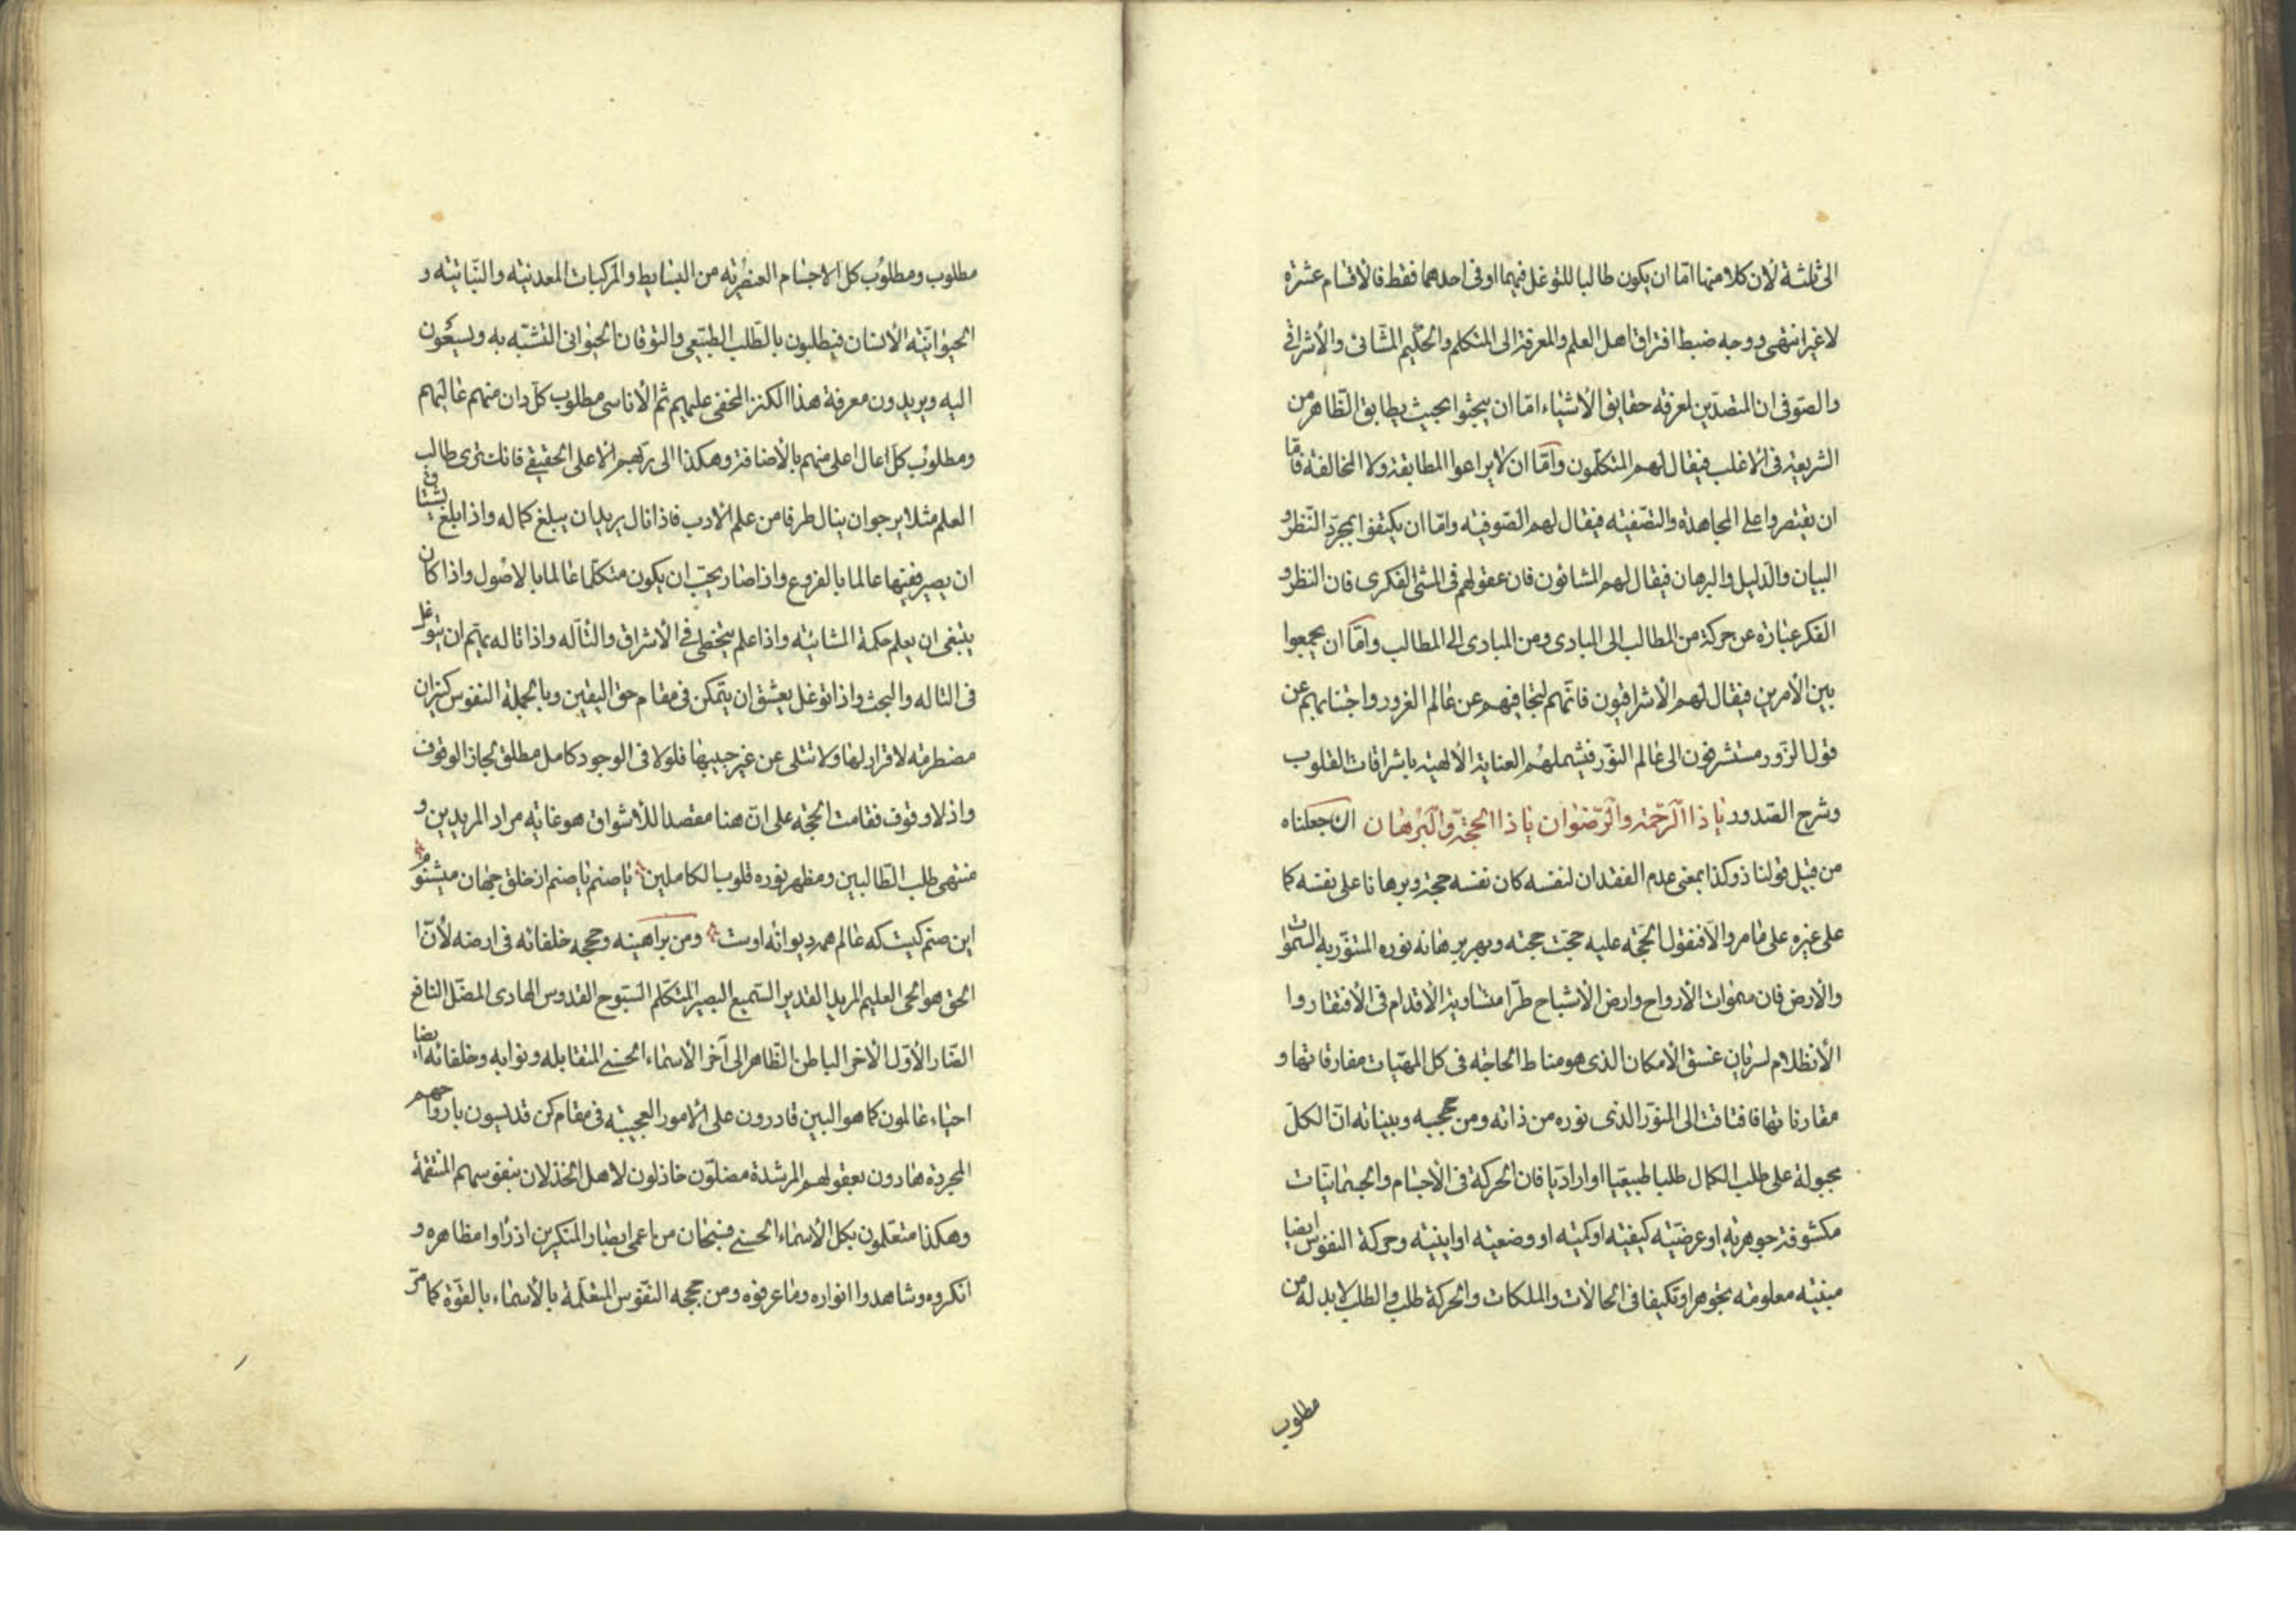 الى ثلثة لأن كلا منها امّا ان يكون طالبا للتوغل فيهما او فى احدهما فقط فالأقسام عشرة
لا غير انتهى ووجه ضبط افتراق اهل العلم والمعرفة الى المتكلم والحكيم المشّائى والأشراقى
والصّوفى ان المتصدّين لمعرفة حقايق الأشياء امّا ان يبحثوا بحيث يطابق الظّاهر من
الشريعة فى الاغلب فيقال لهم المتكلّمون وامّا ان لا يراعوا المطابقة ولا المخالفة فامّا
ان يقتصروا على المجاهدة والتصّفيه فيقال لهم الصّوفيه وامّا ان يكتفوا بمجرّد النّظر و
البيان والدليل والبرهان فيقال لهم المشائون فان عقولهم فى المشى الفكرى فان النظر و
الفكر عبارة عن حركة من المطالب الى المبادى ومن المبادى الى المطالب وامّا ان يجمعوا
بين الأمرين فيقال لهم الأشراقيون فانّهم لتجافيهم عن عالم الغرور واجتنابهم عن
قول الزّور مستشرفون الى عالم النّور فيشملهم العناية الألهية باشراقات القلوب
وشرح الصّدور يا ذا الرّحمة والرّضوان يا ذا الحجّة والبرهان ان جعلناه
من قبيل قولنا ذو كذا بمعنى عدم الفقدان لنفسه كان نفسه حجة وبرهانا على نفسه كما
على غيره على ما مر والّا فنقول الحجّة عليه حجّت حجته وبهر برهانه نوره المتنوّر به السّموات
والأرض فان سموات الأرواح وارض الأشباح طرّا متساوية الاقدام فى الأفتقار وا
الأنظلام لسريان غسق الأمكان الذى هو مناط الحاجه فى كل المهيّات مفارقاتها و
مقارناتها فافتاقت الى المنوّر الذى نوره من ذاته ومن حججه وبيناته انّ الكلّ
مجبولة على طلب الكمال طلبا طبيعيّا او اراديّا فان الحركة فى الأجسام والجسمانيّات
مكشوفة جوهريّه او عرضيّه كيفيّه او كميّه او وضعيّه او اينيّه وحركة النفوس ايضا
مبنيّه معلومه تجوهرا وتكيفا فى الحالات والملكات والحركة طلب والطلب لا بد له من
مطلوب
مطلوب ومطلوب كل الاجسام العنصريّه من البسايط والمركبات المعدنيّه والنّباتيّه و
الحيوانيّه الأنسان فيطلبون بالطّلب الطبيعى والتوقان الحيوانى التشبّه به ويسعون
اليه ويريدون معرفة هذا الكنز المخفى عليهم ثم الأناسى مطلوب كلّ دان منهم عاليهم
ومطلوب كلّ عال اعلى منهم بالأضافة وهكذا الى ربّهم الاعلى الحقيقى فانك ترى طالب
العلم مثلا يرجو ان ينال طرفا من علم الأدب فاذا نال يريد ان يبلغ كماله واذا بلغ يشتاق
ان يصير فقيها عالما بالفروع واذا صار يحبّ ان يكون متكلّما عالما بالاصول واذا كان
يبتغى ان يعلم حكمة المشائيّه واذا علم يتخطى فى الأشراق والتأله واذا تاله يتم ان يتوغل
فى التاله والبحث واذا توغل يعشق ان يتمكن فى مقام حق اليقين وبالجملة النفوس كنيران
مضطرمه لا قرار لها ولا تتلى عن غير حبيبها فلولا فى الوجود كامل مطلق لجاز الوقوف
واذ لا وقوف فقامت الحجّه على انّ هنا مقصدا للأشواق هو غايه مراد المريدين و
منتهى طلب الطّالبين ومظهر نوره قلوب الكاملين يا صنم يا صنم از خلق جهان ميشنوم
اين صنم كيست كه عالم همه ديوانه اوست ومن براهينه وحججه خلفائه فى ارضه لأنّ ا
الحق هو الحى العليم المريد القدير السّميع البصير المتكلّم السّبوح القدوس الهادى المضلّ النافع
الضّار الأوّل الآخر الباطن الظّاهر الى آخر الأسماء الحسنى المتقابله ونوابه وخلفائه ايضا
احياء عالمون كما هو البين قادرون على الامور العجيبه فى مقام كن قدسيون بارواحهم
المجردة هادون بعقولهم المرشدة مضلّون خاذلون لاهل الخذلان بنفوسهم المنتقمة
وهكذا متعلّمون بكل الأسماء الحسنى فسبحان من اعمى ابصار المنكرين اذ راوا مظاهره و
انكروه وشاهدوا انواره وما عرفوه ومن حججه النّفوس المتعلّمة بالأسماء بالقوّة كما مرّ